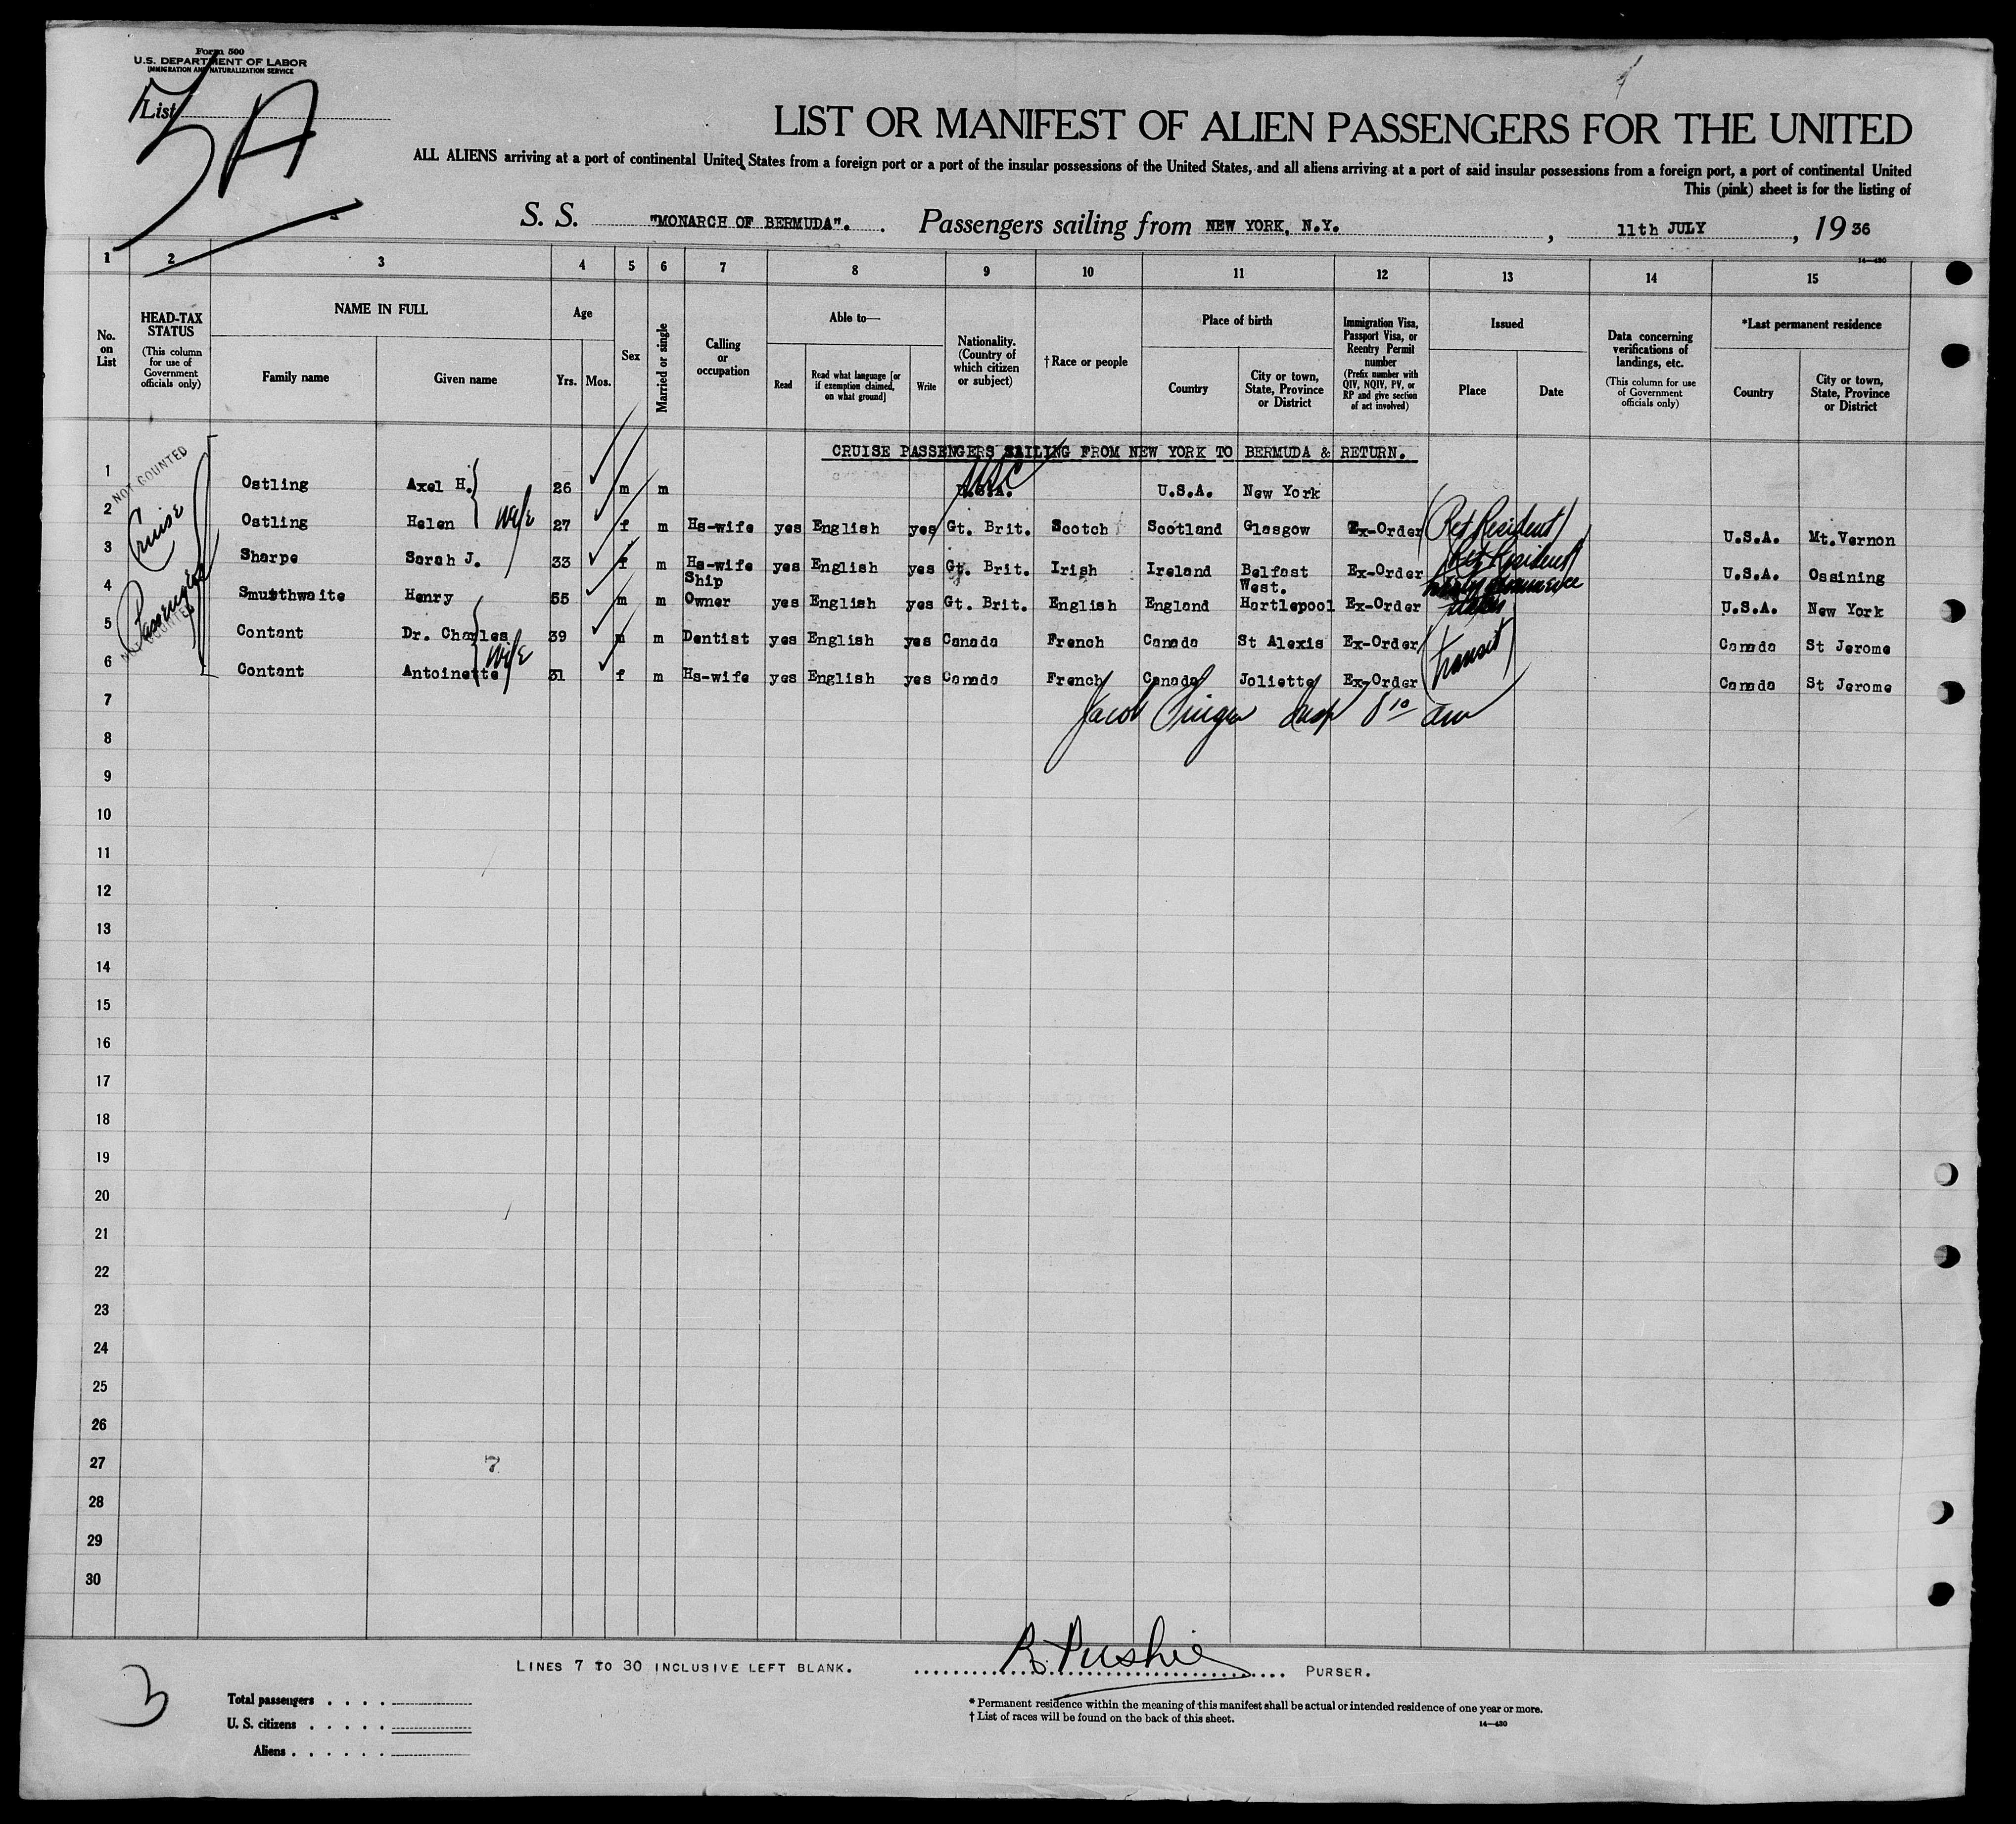 Form 500
U.S. DEPARTMENT OF LABOR
IMMIGRATION AND NATURALIZATION SERVICE
List
5A
LIST OR MANIFEST OF ALIEN PASSENGERS FOR THE UNITED
ALL ALIENS arriving at a port of continental United States from a foreign port or a port of the insular possessions of the United States, and all aliens arriving at a port of said insular possessions from a foreign port, a port of continental United
This (pink) sheet is for the listing of
S. S. "MONARCH OF BERMUDA". Passengers sailing from NEW YORK, N.Y. , 11th JULY , 1936
14—430
1 2 3 4 5 6 7 8 9 10 11 12 13 14 15
No. on List
HEAD-TAX STATUS (This column for use of Government officials only)
NAME IN FULL
Family name Given name
Age
Yrs. Mos.
Sex
Married or single
Calling or occupation
Able to—
Read
Read what language [or if exemption claimed, on what ground]
Write
Nationality. (Country of which citizen or subject)
† Race or people
Place of birth
Country
City or town, State, Province or District
Immigration Visa, Passport Visa, or Reentry Permit number (Prefix number with QIV, NQIV, PV, or RP and give section of act involved)
Issued
Place Date
Data concerning verifications of landings, etc. (This column for use of Government officials only)
*Last permanent residence
Country
City or town, State, Province or District
CRUISE PASSENGERS SAILING FROM NEW YORK TO BERMUDA & RETURN.
NOT COUNTED
Cruise Passengers
NOT COUNTED
1 Ostling Axel H. 26 m m U.S.A. USC U.S.A. New York
2 Ostling Helen wife 27 f m Hs-wife yes English yes Gt. Brit. Scotch Scotland Glasgow Ex-Order Ret Resident U.S.A. Mt.Vernon
3 Sharpe Sarah J. 33 f m Hs-wife yes English yes Gt. Brit. Irish Ireland Belfast Ex-Order Ret Resident U.S.A. Ossining
4 Smurthwaite Henry 55 m m Ship Owner yes English yes Gt. Brit. English England West. Hartlepool Ex-Order U.S.A. New York
5 Contant Dr. Charles 39 m m Dentist yes English yes Canada French Canada St Alexis Ex-Order Transit Canada St Jerome
6 Contant Antoinette wife 31 f m Hs-wife yes English yes Canada French Canada Joliette Ex-Order Canada St Jerome
7
Jacob Insp 8 10 am
8
9
10
11
12
13
14
15
16
17
18
19
20
21
22
23
24
25
26
27 7
28
29
30
LINES 7 TO 30 INCLUSIVE LEFT BLANK. R. Pushie PURSER.
3
Total passengers
U. S. citizens
Aliens
* Permanent residence within the meaning of this manifest shall be actual or intended residence of one year or more.
† List of races will be found on the back of this sheet.
14—430